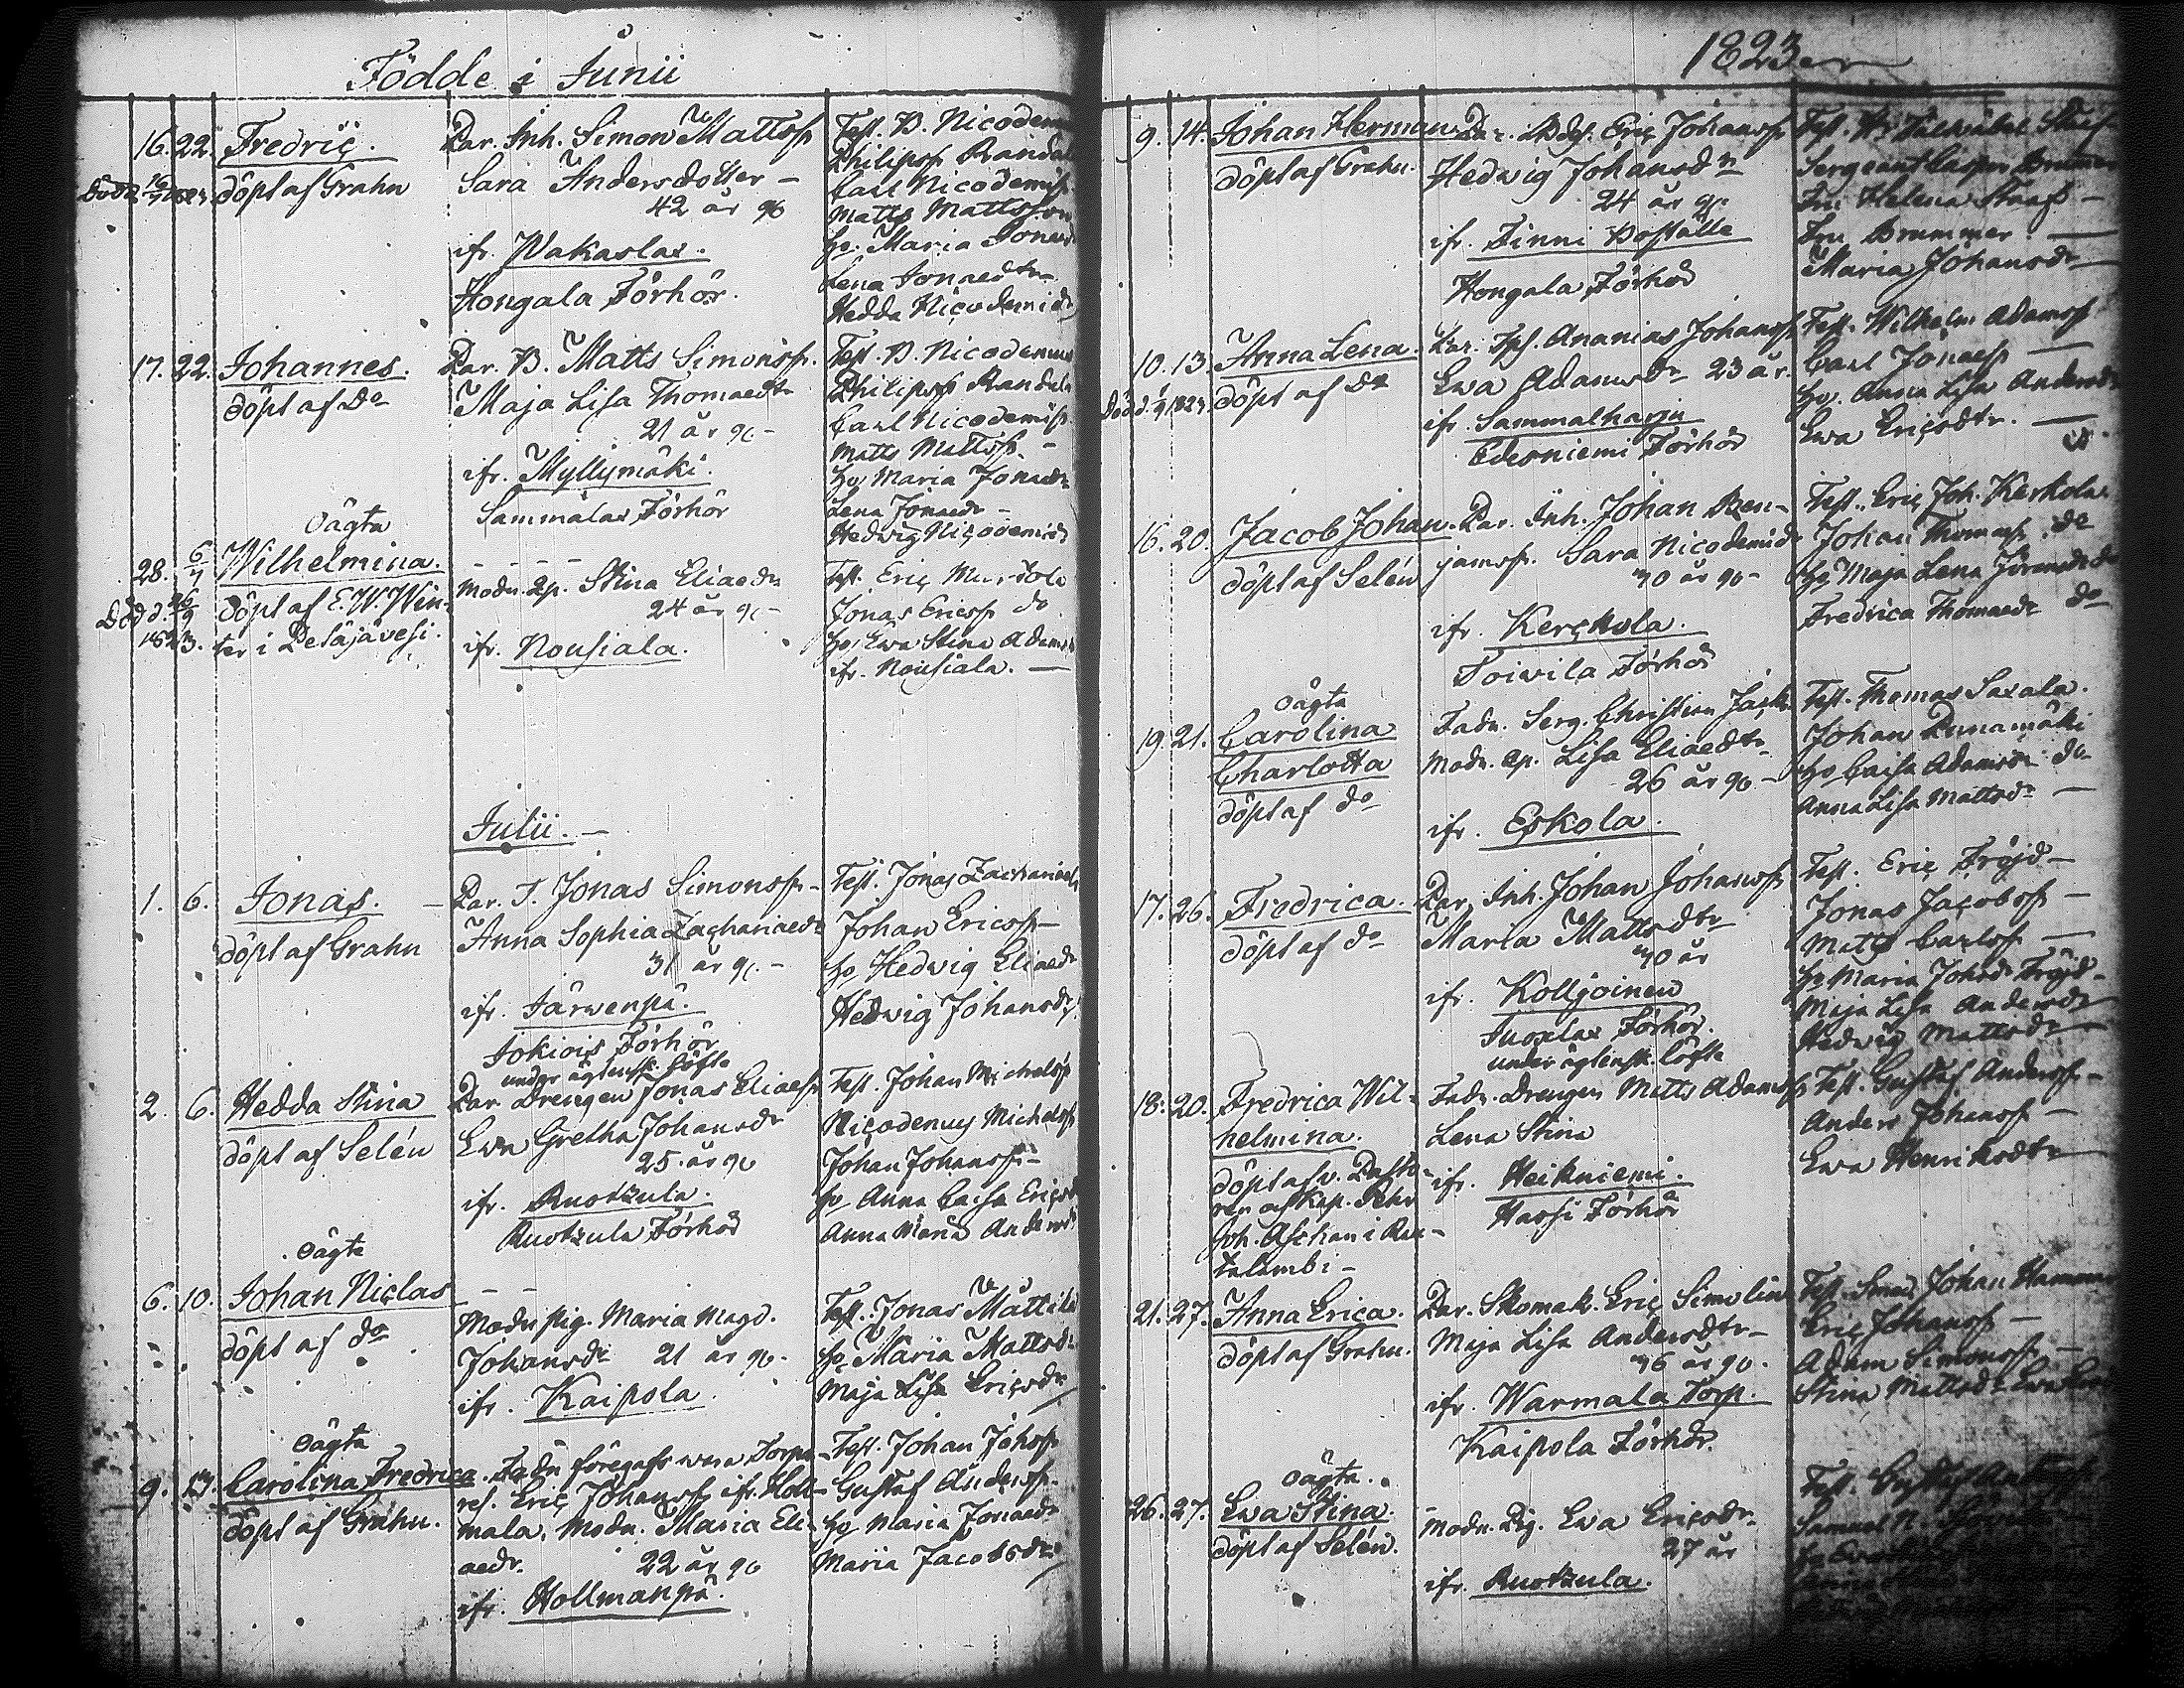 Födde i Junii
16. 22. Fredriç.
döpt af Grahn
Par. Inh. Simon Mattss
Sara Andersdotter –
42 år
ifr. Wakaslax.
Hongala Förhör.
Test. B. Nicodem
Philipss Randa
Carl Nicodemiss
Matts Mattsson
Hu. Maria Jonaed
Lena Jonaedtr
Hedda Niçodemid
17. 22. Johannes.
döpt af Do
Par. B. Matts Simonss.
Maja Lisa Thomaedtr
21 år
ifr. Myllymäki.
Sammalax Förhör
Test. B. Nicodemus
Philipss Randala
Carl Nicodemiss
Matts Mattss. –
Hu Maria Jonaedr
Lena Jonaedr –
Hedwig Niçodemid
oägta
28. 6/7 Wilhelmina.
Död d. 26/9
1823.
döpt af E. W. Win-
ter i Petäjävesi.
Modn. Stina Eliaedr
24 år
ifr. Nousiala.
Test. Eriç
Jonas Ericss do
Hu Ewa Stina Adamsd
ifr. Nousiala. —
Julii. –
1. 6. Jonas.
döpt af Grahn
Par. T. Jonas Simonss –
Anna Sophia Zaçhariaedr
31 år
ifr. Järwenpä.
Jokiois Förhör
Test. Jonas Zachariaess
Johan Ericss –
Hu Hedwig Eliaedr
Hedwig Johansdr
under äktensk. löfte
2. 6. Hedda Stina
döpt af Selén
Par Drengen Jonas Eliaess
Ewa Gretha Johansdr
25 år
ifr. Ruotzula.
Ruotzula Förhör
Test. Johan Michelss
Niçodemus Michelss
Johan Johanss –
Hu Anna Caisa Eriçsd
Anna Maria Andersd
oägta
6. 10. Johan Niçlas
döpt af do
Modn pig. Maria Magd.
Johansdr 21 år
ifr. Kaipola
Test. Jonas Mattila
Hu Maria Mattsdr
Maja Lisa Eriçsdr
oägta
9. 13. Carolina Fredrica.
döpt af Grahn.
Fadn föregafs wara Torpa-
res. Eriç Johanss ifr. Holl-
mala, Modn. Maria Eli-
aedr. 22 år
ifr. Hollmanpä.
Test. Johan Johss
Gustaf Anderss.
Hu Maria Jonaedr
Maria Jacobsdr
1823
9. 14. Johan Herman
döpt af Grahn.
Par. Eriç Johanss
Hedwig Johansdr
24 år
ifr. Finni Boställe
Hongala Förhör
Sergeant Casper Brummer
Fru Helena Staaf –
Fru Brummer. —
Maria Johansdr
10. 13. Anna Lena.
döpt af do
Par. Ananias Johanss
Ewa Adamsdr 23 år.
ifr. Sammalharju
Edesniemi Förhör
Test. Wilhelm Adamss
Carl Jonaess —
Hu. Anna Lisa Andersdr
Ewa Eriçsdtr. —
16. 20. Jacob Johan.
döpt af Selén
Par. Inh. Johan Ben-
jamss. Sara Nicodemidr
40 år
ifr. Kerçkola.
Toivila Förhör
Test. Eriç Joh. Kerkola
Johan Thomass do
Hu Maja Lena do
Fredrica Thomaedr do
oägta
19. 21. Carolina
Charlotta
döpt af do
Fadn. Serg. Christian
Modn. Lisa Eliaedtr
26 år
ifr. Eskola.
Test. Thomas Saxala.
Johan Runamäki
Hu Caisa Adamsdr do
Anna Lisa Mattsdr —
17. 26. Fredrica.
döpt af do
Par. Inh. Johan Johanss
Maria Mattsdtr
40 år
ifr. Kolljoinen
Juoxlax Förhör.
Test. Eriç Fröjd –
Jonas Jaçobss –
Matts Carlss —
Hu Maria Johsdr Fröjd –
Maja Lisa Andersdr
Hedwig Mattsdr
under äktensk. löfte
18. 20. Fredrica Wil-
helmina.
döpt af v. Pasto-
ren och Kap. Pehr
Joh. Aschan i Rau-
talambi –
Fadn. Drengen Matts Adamss
Lena Stina
ifr. Heikniemi.
Hassi Förhör
Test. Gustaf Anderss –
Anders Johanss –
Ewa Henriksdtr
21. 27. Anna Eriça.
döpt af Grahn.
Par. Skomak. Eriç Simelin
Maja Lisa Andersdtr –
46 år
ifr. Warmala Torp.
Kaipola Förhör.
Test. Smed. Johan Hammar
Eriç Johanss –
Adam Simonss –
Stina Mattsdr
oägta.
26. 27. Ewa Stina.
döpt af Selén.
Modn. Pig. Ewa Eriçsdr.
27 år
ifr. Ruotzula.
Samuel